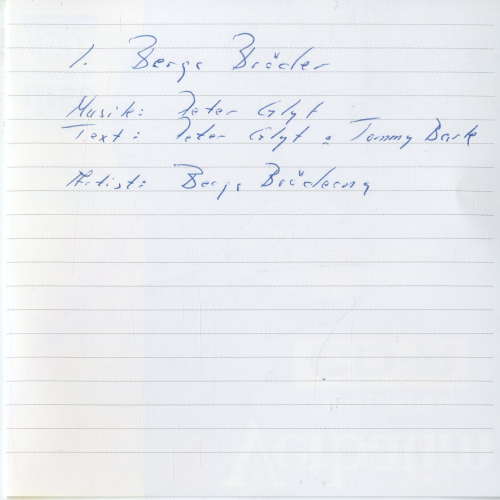 1. Bergs Bröder
Musik: Peter Glyt
Text: Peter Glyt & Tommy Bark
Artist: Bergs Bröderna